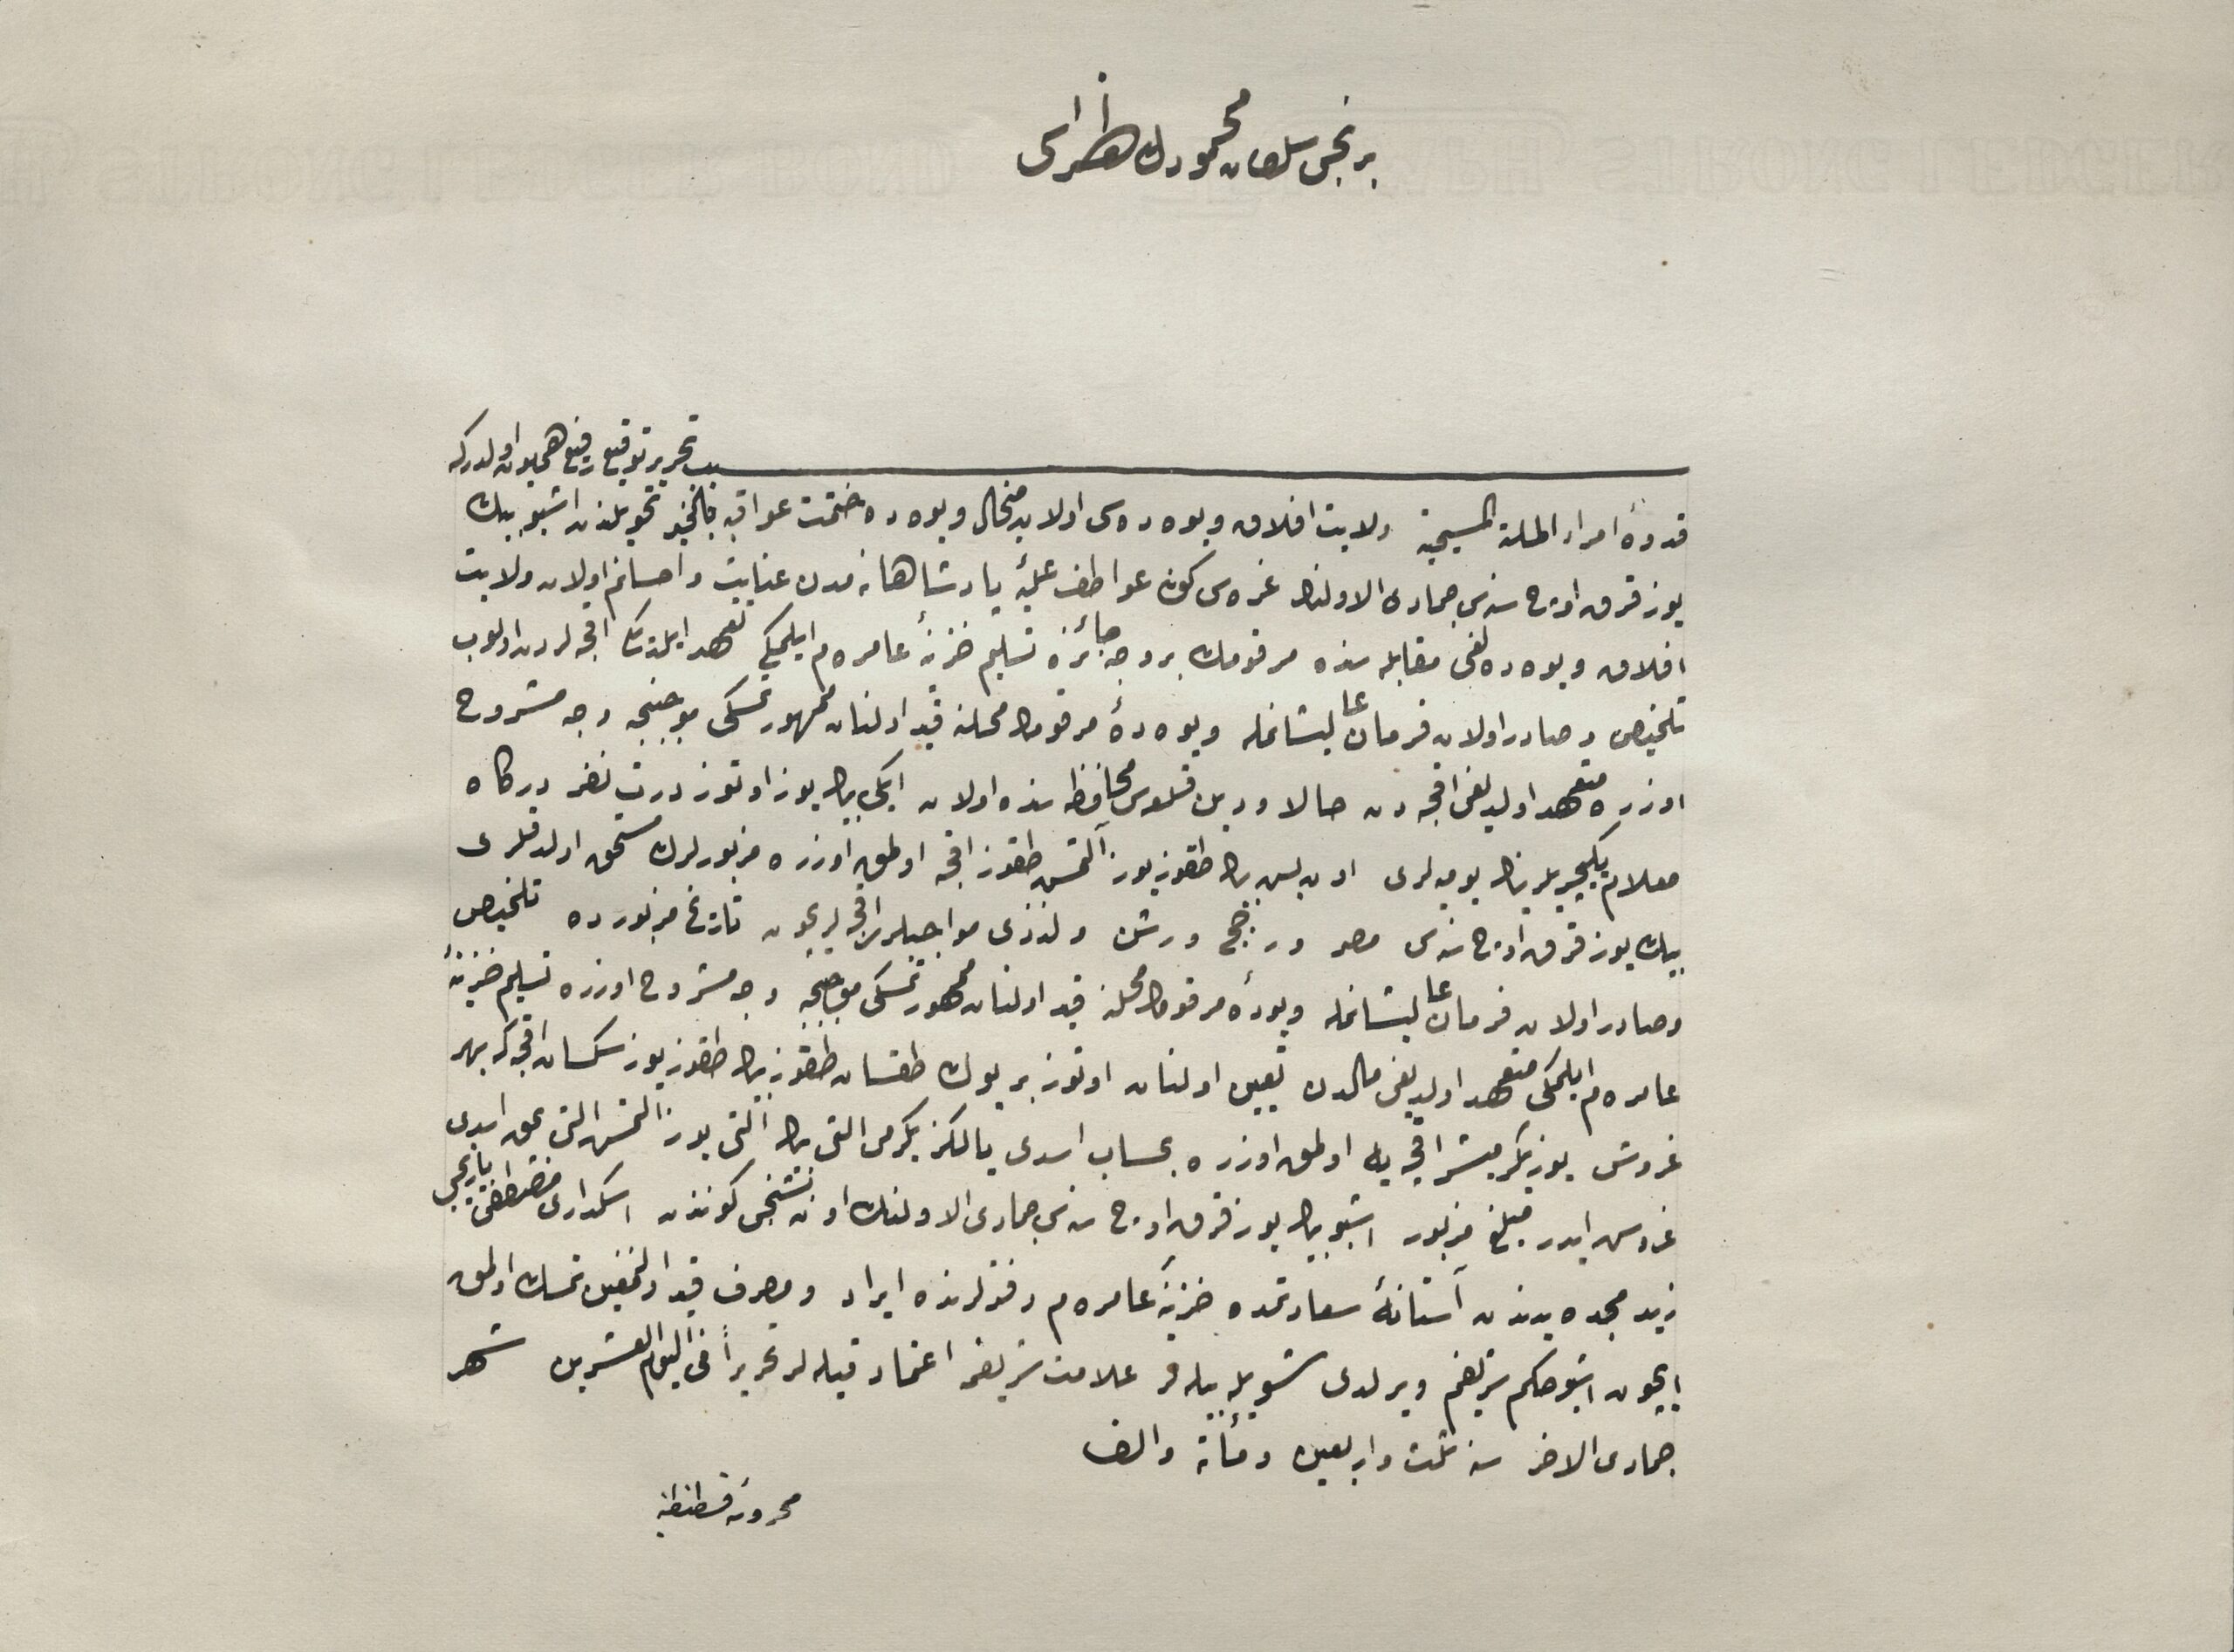 برنجی سلطان محمودك طغراسی
سبب تحریر توقیع رفیع همایون اولدركه
قدوهٔ امراء الملة المسیحیة ولایت افلاق ویوه‌ده‌سی اولان میخال ویوه‌ده ختمت عواقبه بالخیر تحویلندن اشبو بیك
یوز قرق اوچ سنه‌سی جمادی الاولنك غره‌سی كونی عواطف علیهٔ پادشاهانه‌مدن عنایت و احسانم اولان ولایت
افلاق ویوه‌ده‌لغی مقابله‌سنده مرقومك بر وجه جائزه تسلیم خزینهٔ عامره‌م ایلمكی تعهد ایلدیكی اقچه‌لردن اولوب
تلخیص و صادر اولان فرمان عالیشانمله ویوه‌دهٔ مرقومك محلنه قید اولنان ممهور تمسكی موجبنجه وجه مشروح
اوزره متعهد اولدیغی اقچه‌دن حالا ودین قلعه‌سی محافظه‌سنده اولان ایكی بیك یوز اوتوز درت نفر دركاه
معلام یكیچریلرینك یومیه‌لری اون بش بیك طقوز یوز آلتمش طقوز اقچه اولمق اوزره مزبورلرك مستحق اولدقلری
بیك یوز قرق اوچ سنه‌سی مصر و رجج و رشن و لذذی مواجبلری اقچه‌لریچون تاریخ مزبورده تلخیص
و صادر اولان فرمان عالیشانمله ویودهٔ مرقومك محلنه قید اولنان ممهور تمسكی موجبنجه وجه مشروح اوزره تسلیم خزینهٔ
عامره‌م ایلمكی متعهد اولدیغی مالدن تعیین اولنان اوتوز بر یوك طقسان طقوز بیك طقوز یوز سكسان اقچه كه بهر
غروش یوز یكرمیشر اقچه‌یه اولمق اوزره بحساب اسدی یالكز یكرمی التی بیك التی یوز التمش التی بچق اسدی
غروش ایدر مبلغ مزبور اشبو بیك یوز قرق اوچ سنه‌سی جمادی الاولنك اون بشنجی كوندن اسكداری مصطفی یازیجی
زید مجده یدندن آستانهٔ سعادتمده خزینهٔ عامره‌م دفترلرنده ایراد و مصرف قید اولنمغین تمسك اولمق
ایچون اشبو حكم شریفم ویرلدی شویله بیله‌لر علامت شریفه اعتماد قیله‌لر تحریراً فی الیوم العشرین شهر
جمادی الاخر سنه ثلث و اربعین و مأة و الف
محروسهٔ قسطنطنیه